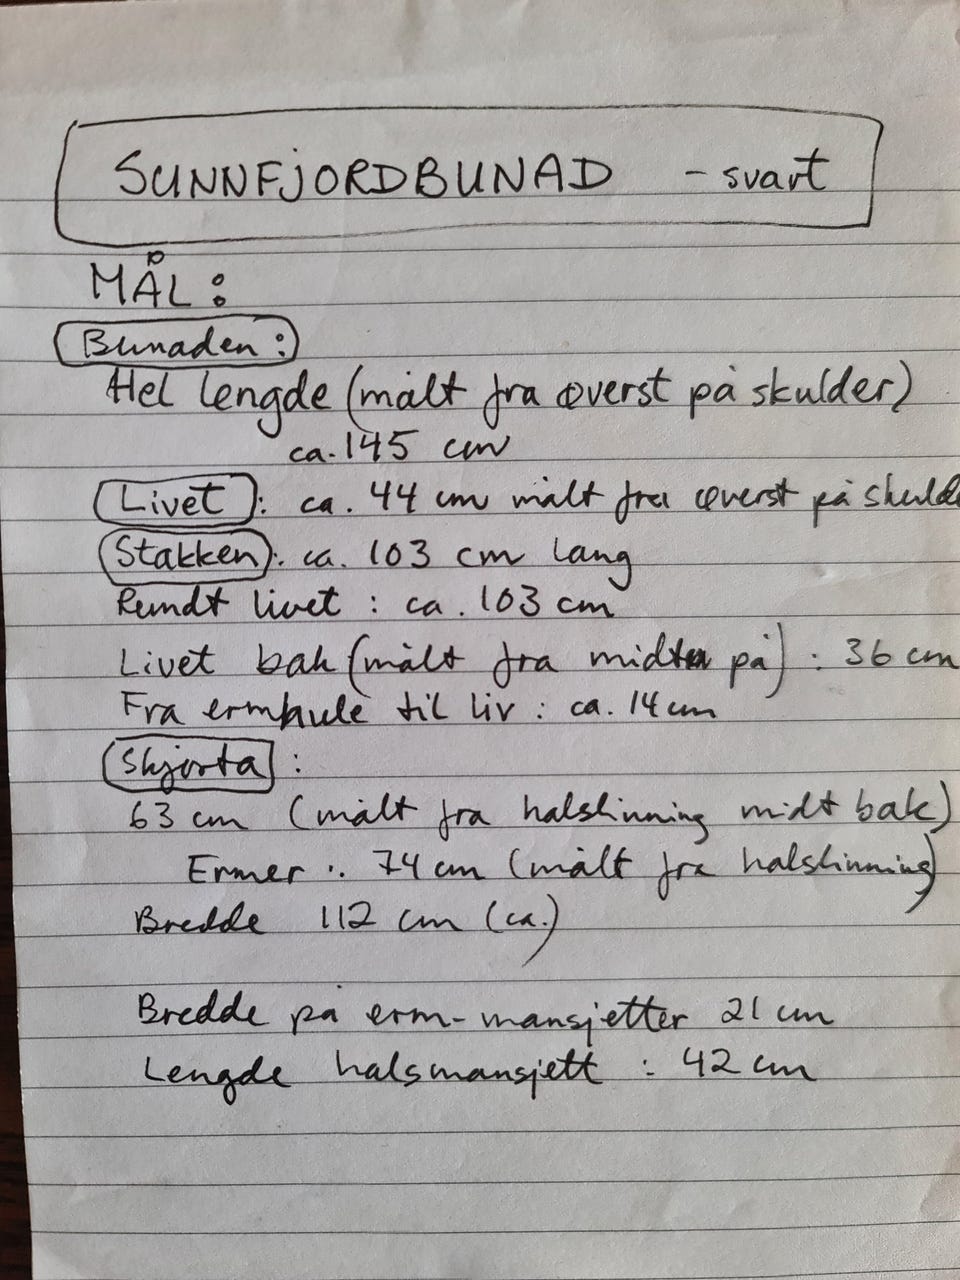 SUNNFJORDBUNAD - svart
MÅL:
Bunaden:
Hel lengde (målt fra øverst på skulder)
ca. 145 cm
Livet: ca. 44 cm målt fra øverst på skulde
Stakken: ca. 103 cm lang
Rundt livet: ca. 103 cm
Livet bak (målt fra midten på): 36 cm
Fra ermhule til liv: ca. 14 cm
Skjorta:
63 cm (målt fra halslinning midt bak)
Ermer: 74 cm (målt fra halslinning)
Bredde 112 cm (ca.)
Bredde på erm-mansjetter 21 cm
Lengde halsmansjett: 42 cm